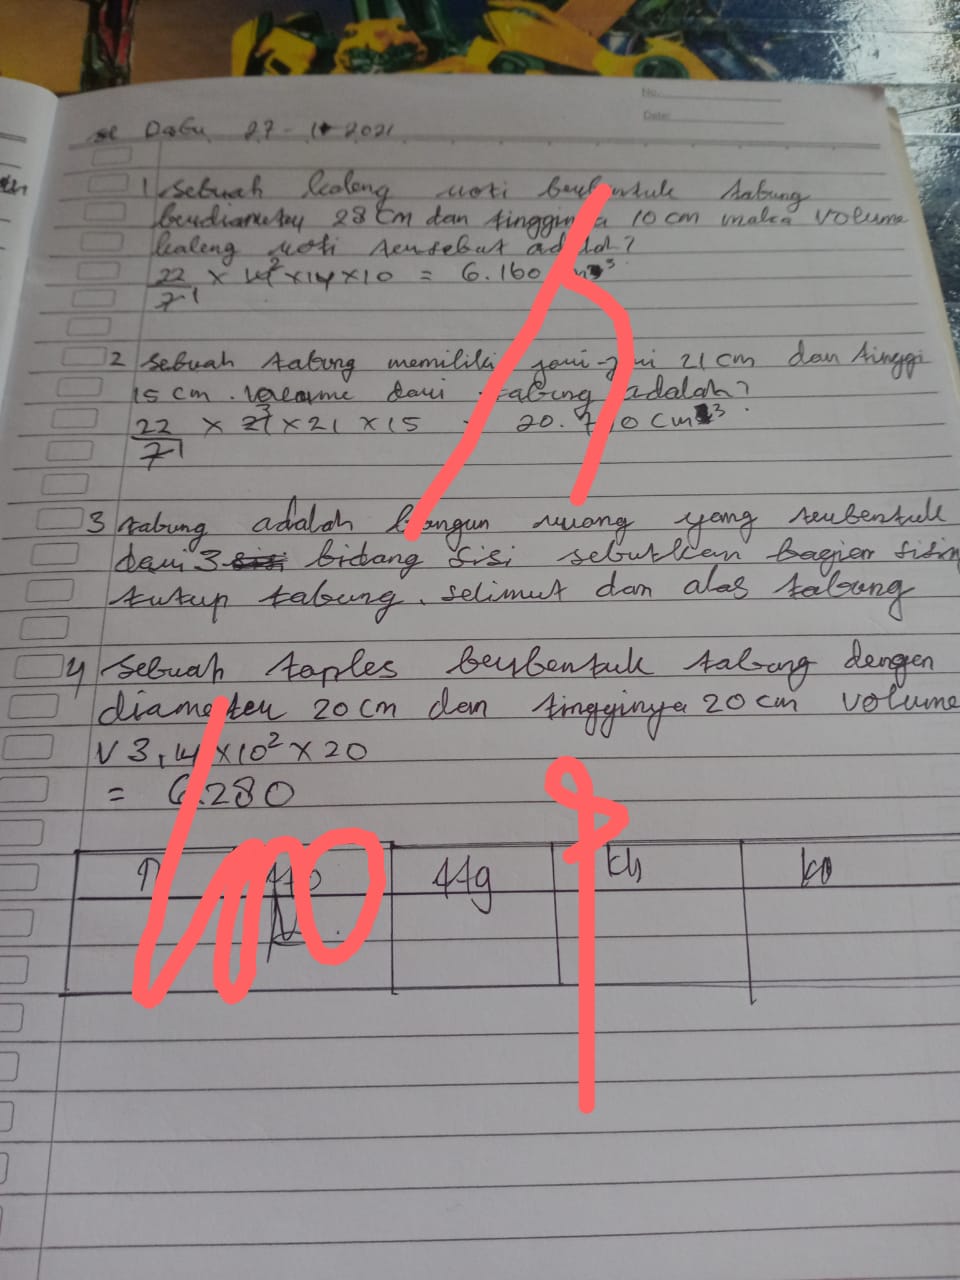 No.
Date:
Rabu 27-10-2021
1 Sebuah kaleng roti berbentuk tabung
berdiameter 28 cm dan tingginya 10 cm maka volume
kaleng roti tersebut adalah?
22/7 × 14² × 14 × 10 = 6.160 cm³
2 Sebuah tabung memiliki jari-jari 21 cm dan tinggi
15 cm. Volume dari tabung adalah?
22/7 × 21 × 21 × 15 20.790 cm³
3 tabung adalah bangun ruang yang terbentuk
dari 3 bidang sisi sebutkan bagian sisi
tutup tabung. selimut dan alas tabung
4 Sebuah toples berbentuk tabung dengen
diameter 20 cm dan tingginya 20 cm volume
V 3,14 × 10² × 20
= 6.280
100
ttg